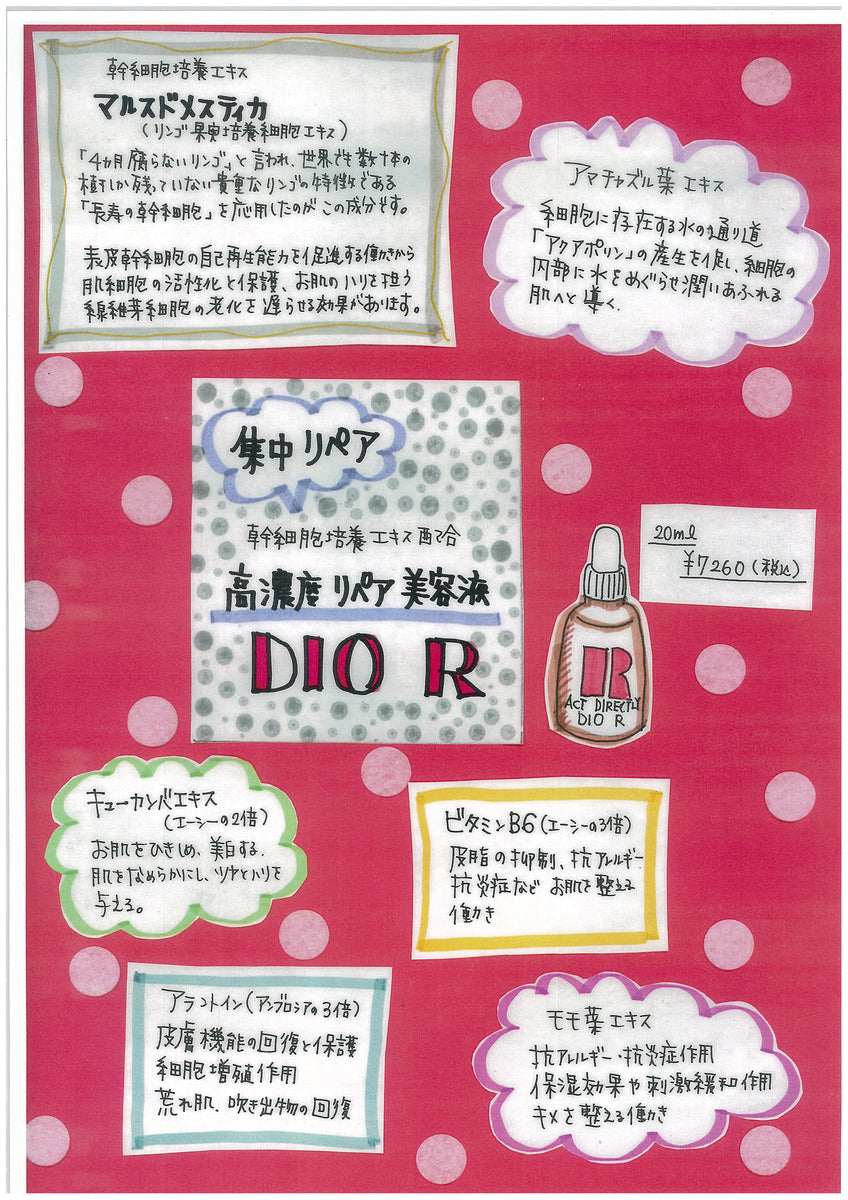 幹細胞培養エキス
マルスドメスティカ
（リンゴ果実培養細胞エキス）
「4ヵ月腐らないリンゴ」と言われ、世界でも数十本の
樹しか残っていない貴重なリンゴの特徴である
「長寿の幹細胞」を応用したのがこの成分です。
表皮幹細胞の自己再生能力を促進する働きから
肌細胞の活性化と保護、お肌のハリを担う
線維芽細胞の老化を遅らせる効果があります。
アマチャズル葉エキス
細胞に存在する水の通り道
「アクアポリン」の産生を促し、細胞の
内部に水をめぐらせ潤いあふれる
肌へと導く.
集中リペア
幹細胞培養エキス配合
高濃度リペア美容液
DIO R
20ml
¥7260（税込）
R
ACT DIRECTLY
DIO R
キューカンバエキス
（エーシーの2倍）
お肌をひきしめ、美白する.
肌をなめらかにし、ツヤとハリを
与える。
ビタミンB6（エーシーの3倍）
皮脂の抑制、抗アレルギー
抗炎症など お肌を整える
働き
アラントイン（アンブロシアの3倍）
皮膚機能の回復と保護
細胞増殖作用
荒れ肌、吹き出物の回復
モモ葉エキス
抗アレルギー・抗炎症作用
保湿効果や刺激緩和作用
キメを整える働き